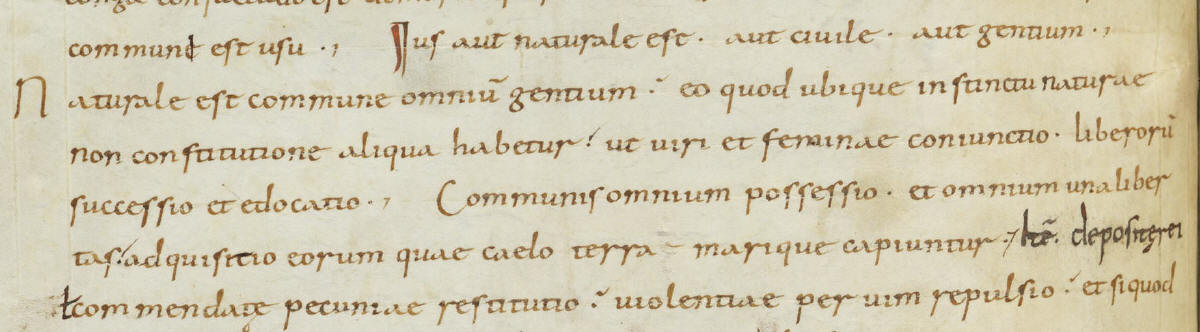 commune est usu ., Ius aut naturale est · aut civile · aut gentium .,
Naturale est commune omniū gentium · eo quod ubique instinctu naturae
non constitutione aliqua habetur · ut viri et feminae coniunctio · liberorū
successio et edocatio ., Communis omnium possessio · et omnium una liber
tas · adquisitio eorum quae caelo terra marique capiuntur ., Itē depositę rei
ł commendatę pecuniae restitutio · violentiae per vim repulsio · et siquod